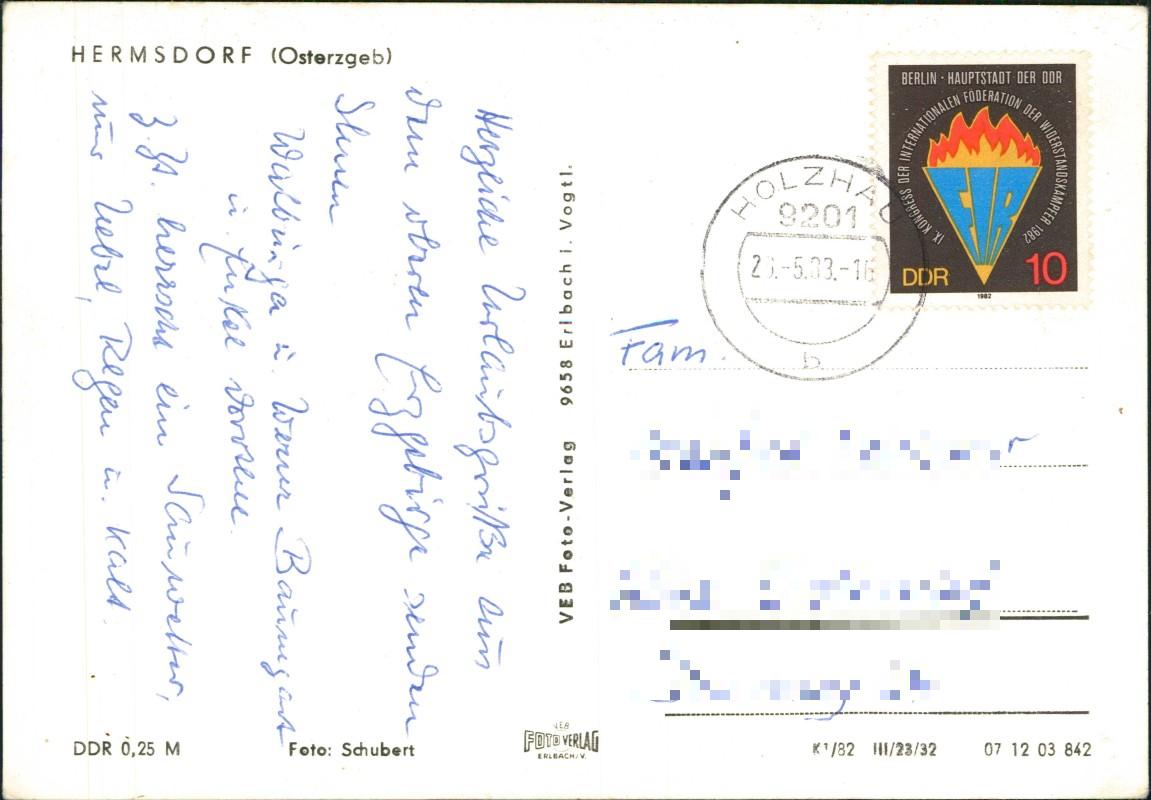 HERMSDORF (Osterzgeb)
Herzliche Urlaubsgrüße aus
dem oberen Erzgebirge senden
Ihnen
Walburga u. Werner Baumgart
u. Enkel
Z. Zt. herrscht ein Sauwetter,
nur Nebel, Regen u. kalt.
DDR 0,25 M
Foto: Schubert
VEB Foto-Verlag 9658 Erlbach i. Vogtl.
VEB
FOTO VERLAG
ERLBACH/V.
BERLIN · HAUPTSTADT DER DDR
IX. KONGRESS DER INTERNATIONALEN FÖDERATION DER WIDERSTANDSKÄMPFER 1982
FIR
DDR 10
1982
HOLZHAU
9201
b
Fam.
K1/82 III/23/32 07 12 03 842